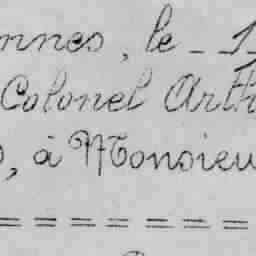 nnes, le - 1
Colonel Arth
, à Monsieu